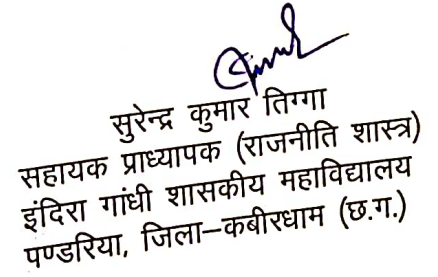 सुरेन्द्र कुमार तिग्गा
सहायक प्राध्यापक (राजनीति शास्त्र)
इंदिरा गांधी शासकीय महाविद्यालय
पण्डरिया, जिला–कबीरधाम (छ.ग.)